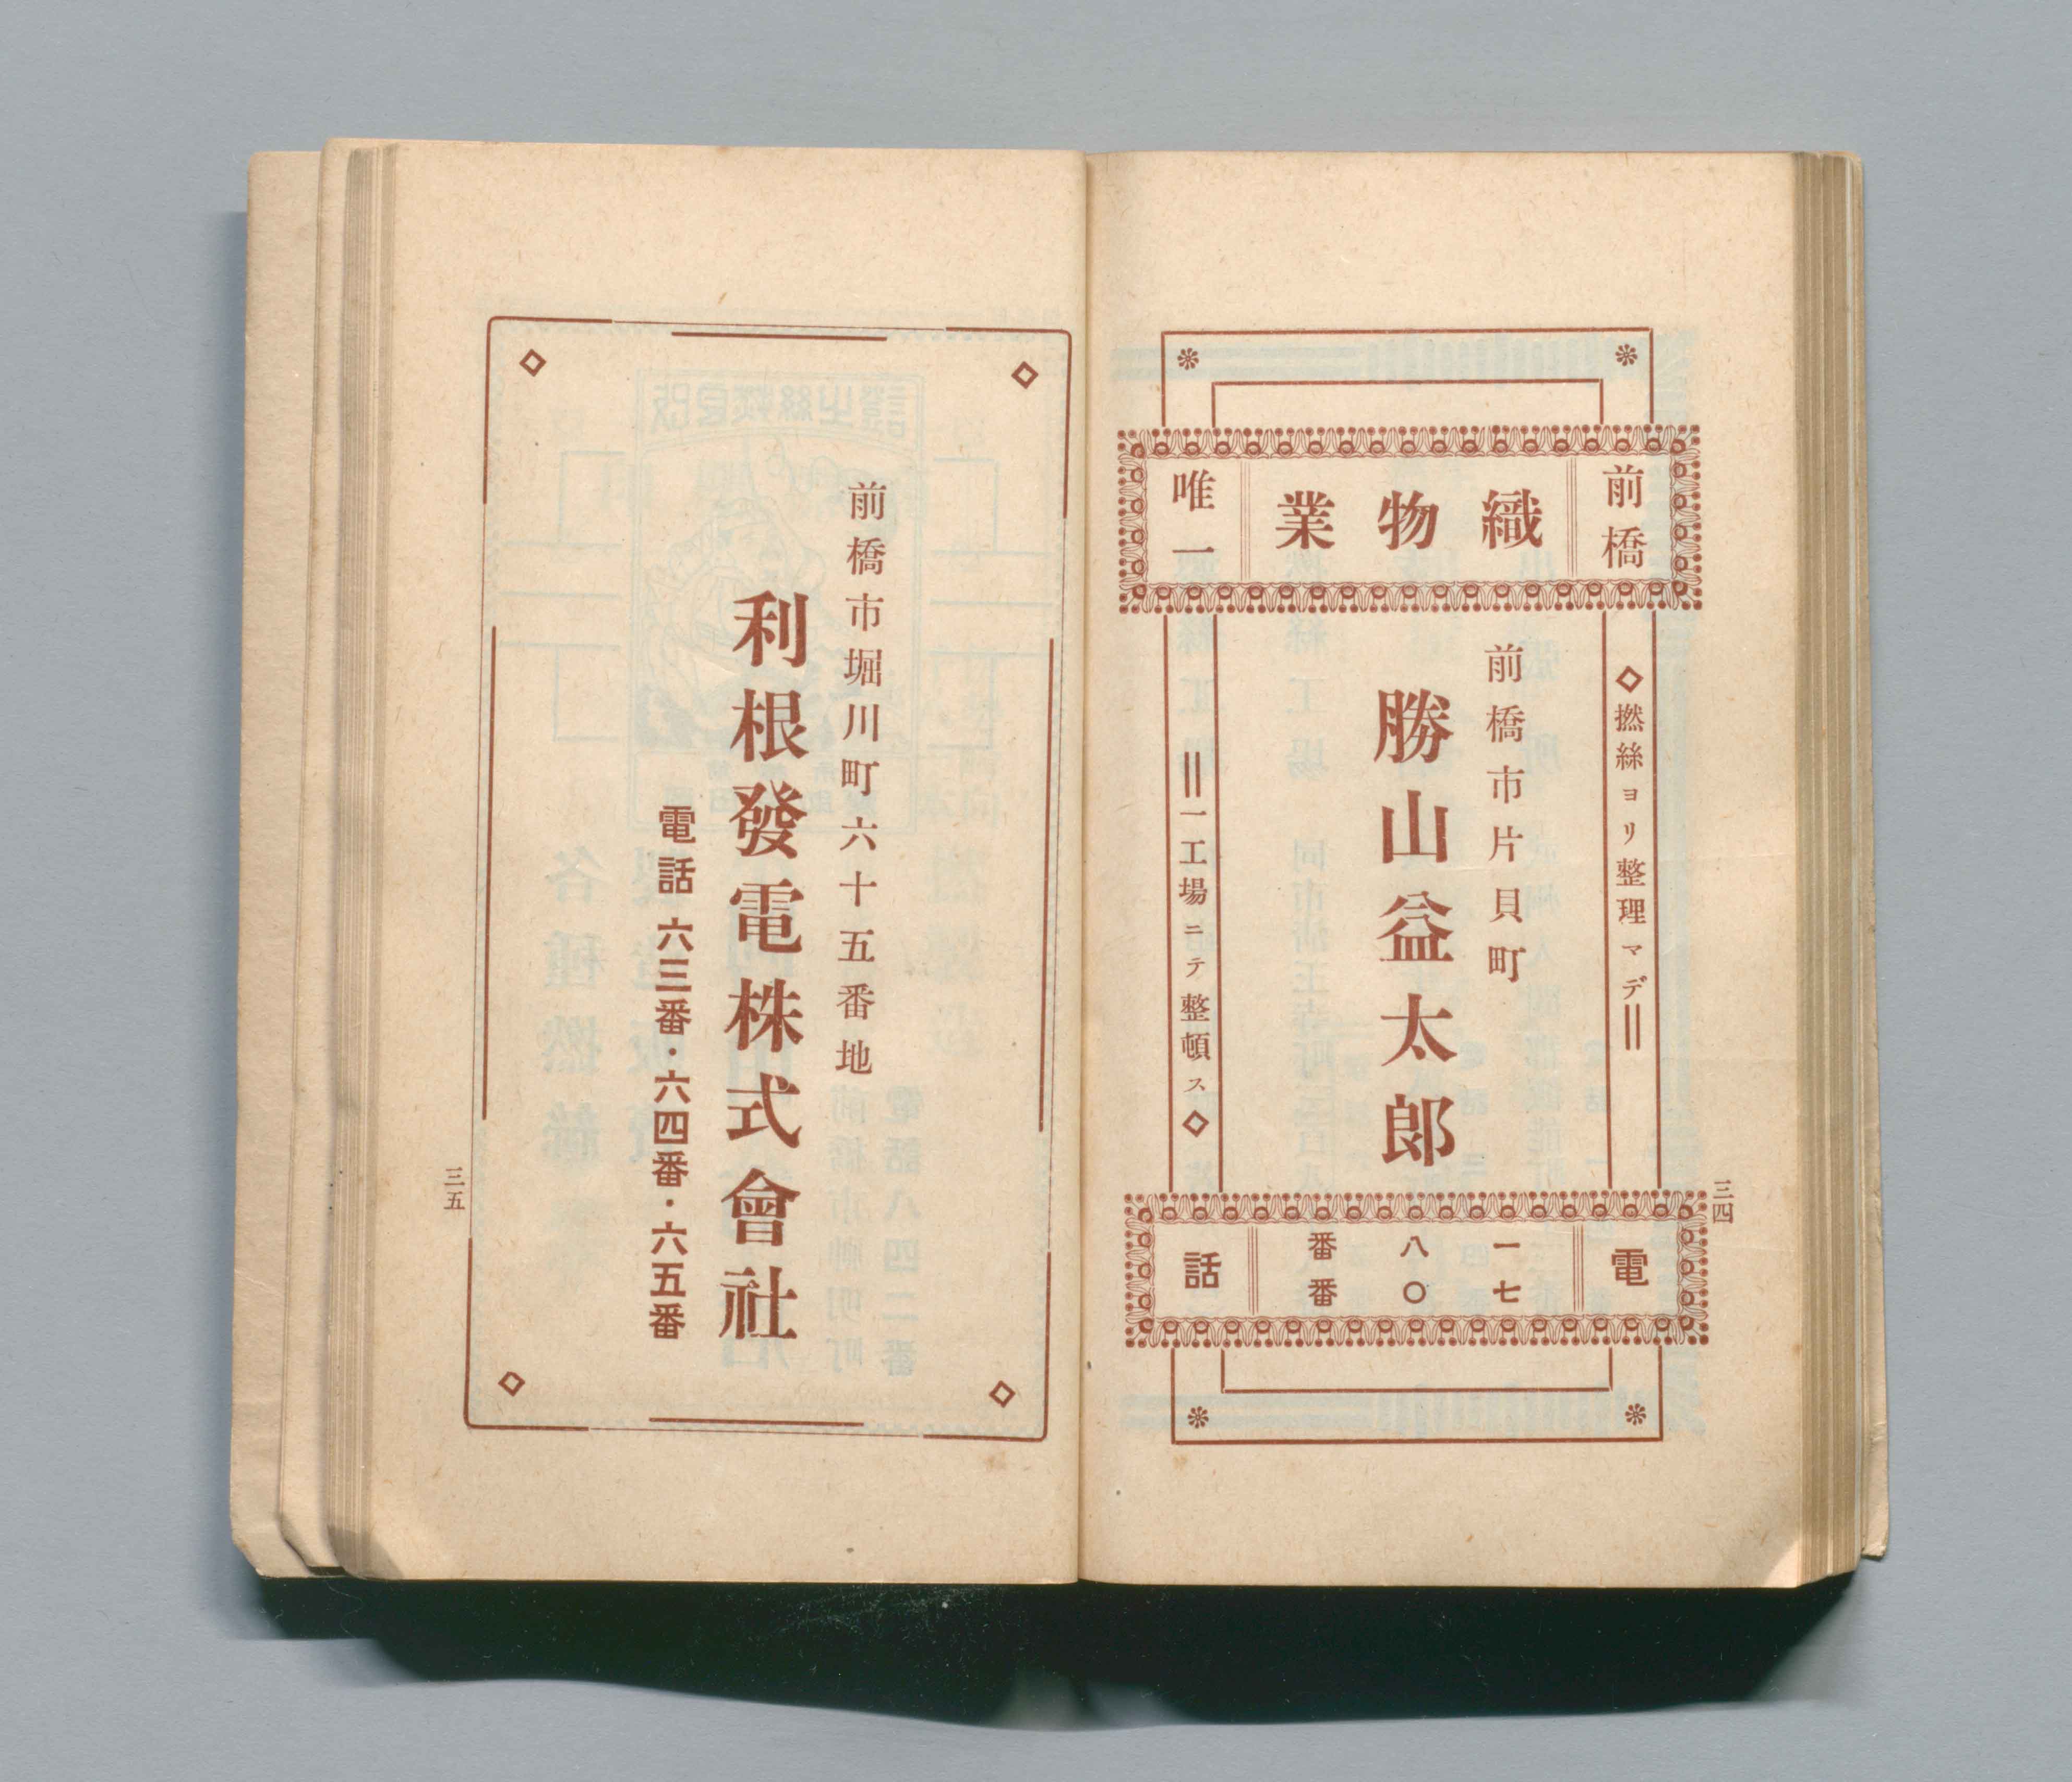 前橋
織物業
唯一
◇撚絲ヨリ整理マデ＝
前橋市片貝町
勝山益太郎
＝一工場ニテ整頓ス◇
電話
一八番
七〇番
三四
前橋市堀川町六十五番地
利根發電株式會社
電話 六三番・六四番・六五番
三五